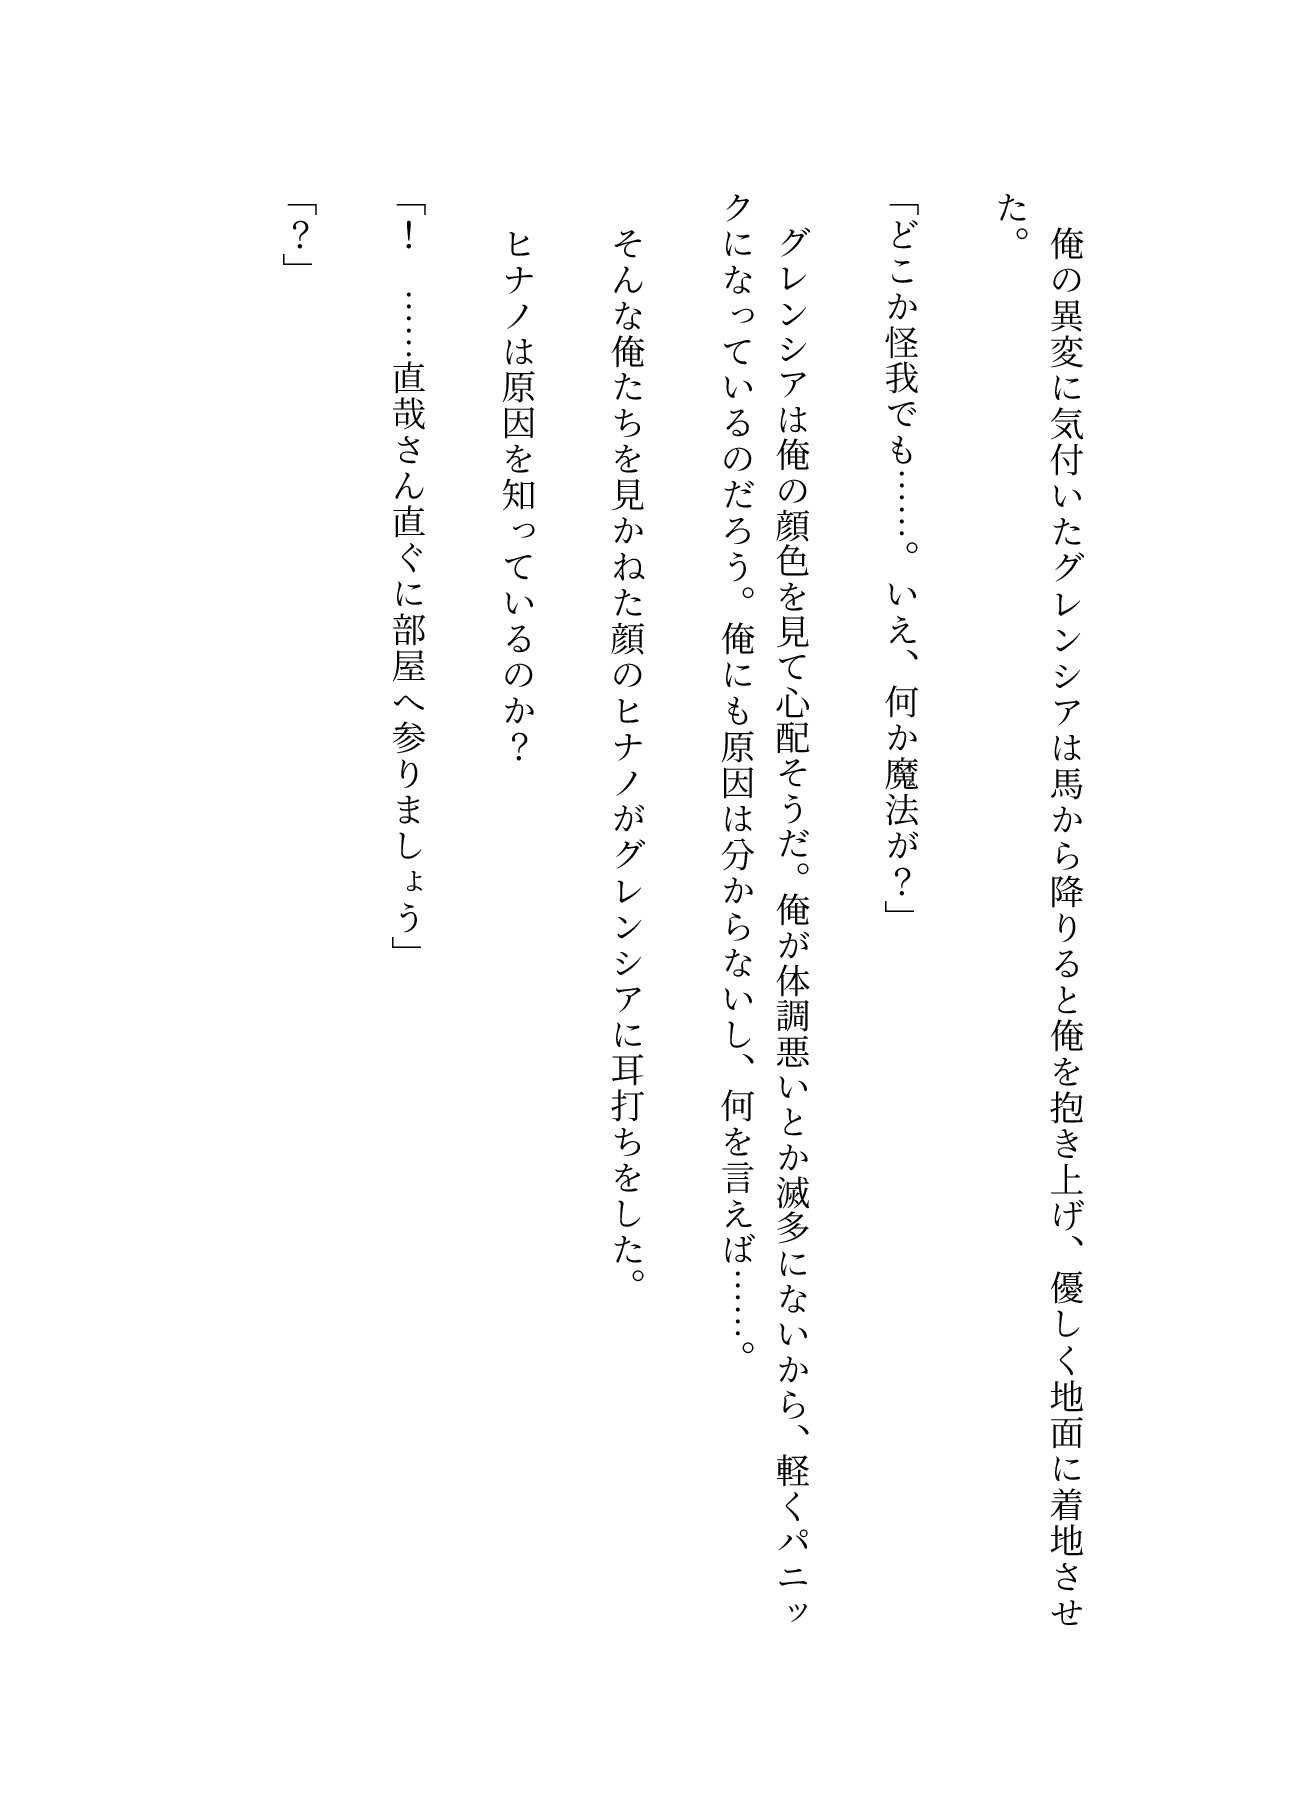 俺の異変に気付いたグレンシアは馬から降りると俺を抱き上げ、優しく地面に着地させ
た。
「どこか怪我でも……。いえ、何か魔法が？」
グレンシアは俺の顔色を見て心配そうだ。俺が体調悪いとか滅多にないから、軽くパニッ
クになっているのだろう。俺にも原因は分からないし、何を言えば……。
そんな俺たちを見かねた顔のヒナノがグレンシアに耳打ちをした。
ヒナノは原因を知っているのか？
「！　……直哉さん直ぐに部屋へ参りましょう」
「？」